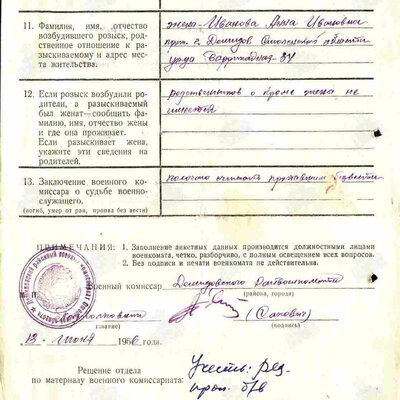 11. Фамилия, имя, отчество
возбудившего розыск, род-
ственное отношение к ра-
зыскиваемому и адрес ме-
ста жительства.
жена - Иванова Анна Ивановна
прож. г. Демидов Смоленской области
улица Баррикадная
12. Если розыск возбудили ро-
дители, а разыскиваемый
был женат—сообщить фа-
милию, имя, отчество жены
и где она проживает.
Если разыскивает жена,
укажите эти сведения на
родителей.
родственников кроме жены не
имеется
13. Заключение военного ко-
миссара о судьбе военно-
служащего.
(погиб, умер от ран, пропал без вести)
полагаю считать пропавшим безвести
ПРИМЕЧАНИЯ: 1. Заполнение анкетных данных производится должностными лицами
военкомата, четко, разборчиво, с полным освещением всех вопросов.
2. Без подписи и печати военкомата не действительна.
военный комиссар Демидовского
(района, города)
подполковник
(звание)
(подпись)
13 июня 1966 года.
Решение отдела
по материалу военного комиссариата:
Учесть: ряд.
проп. б/в